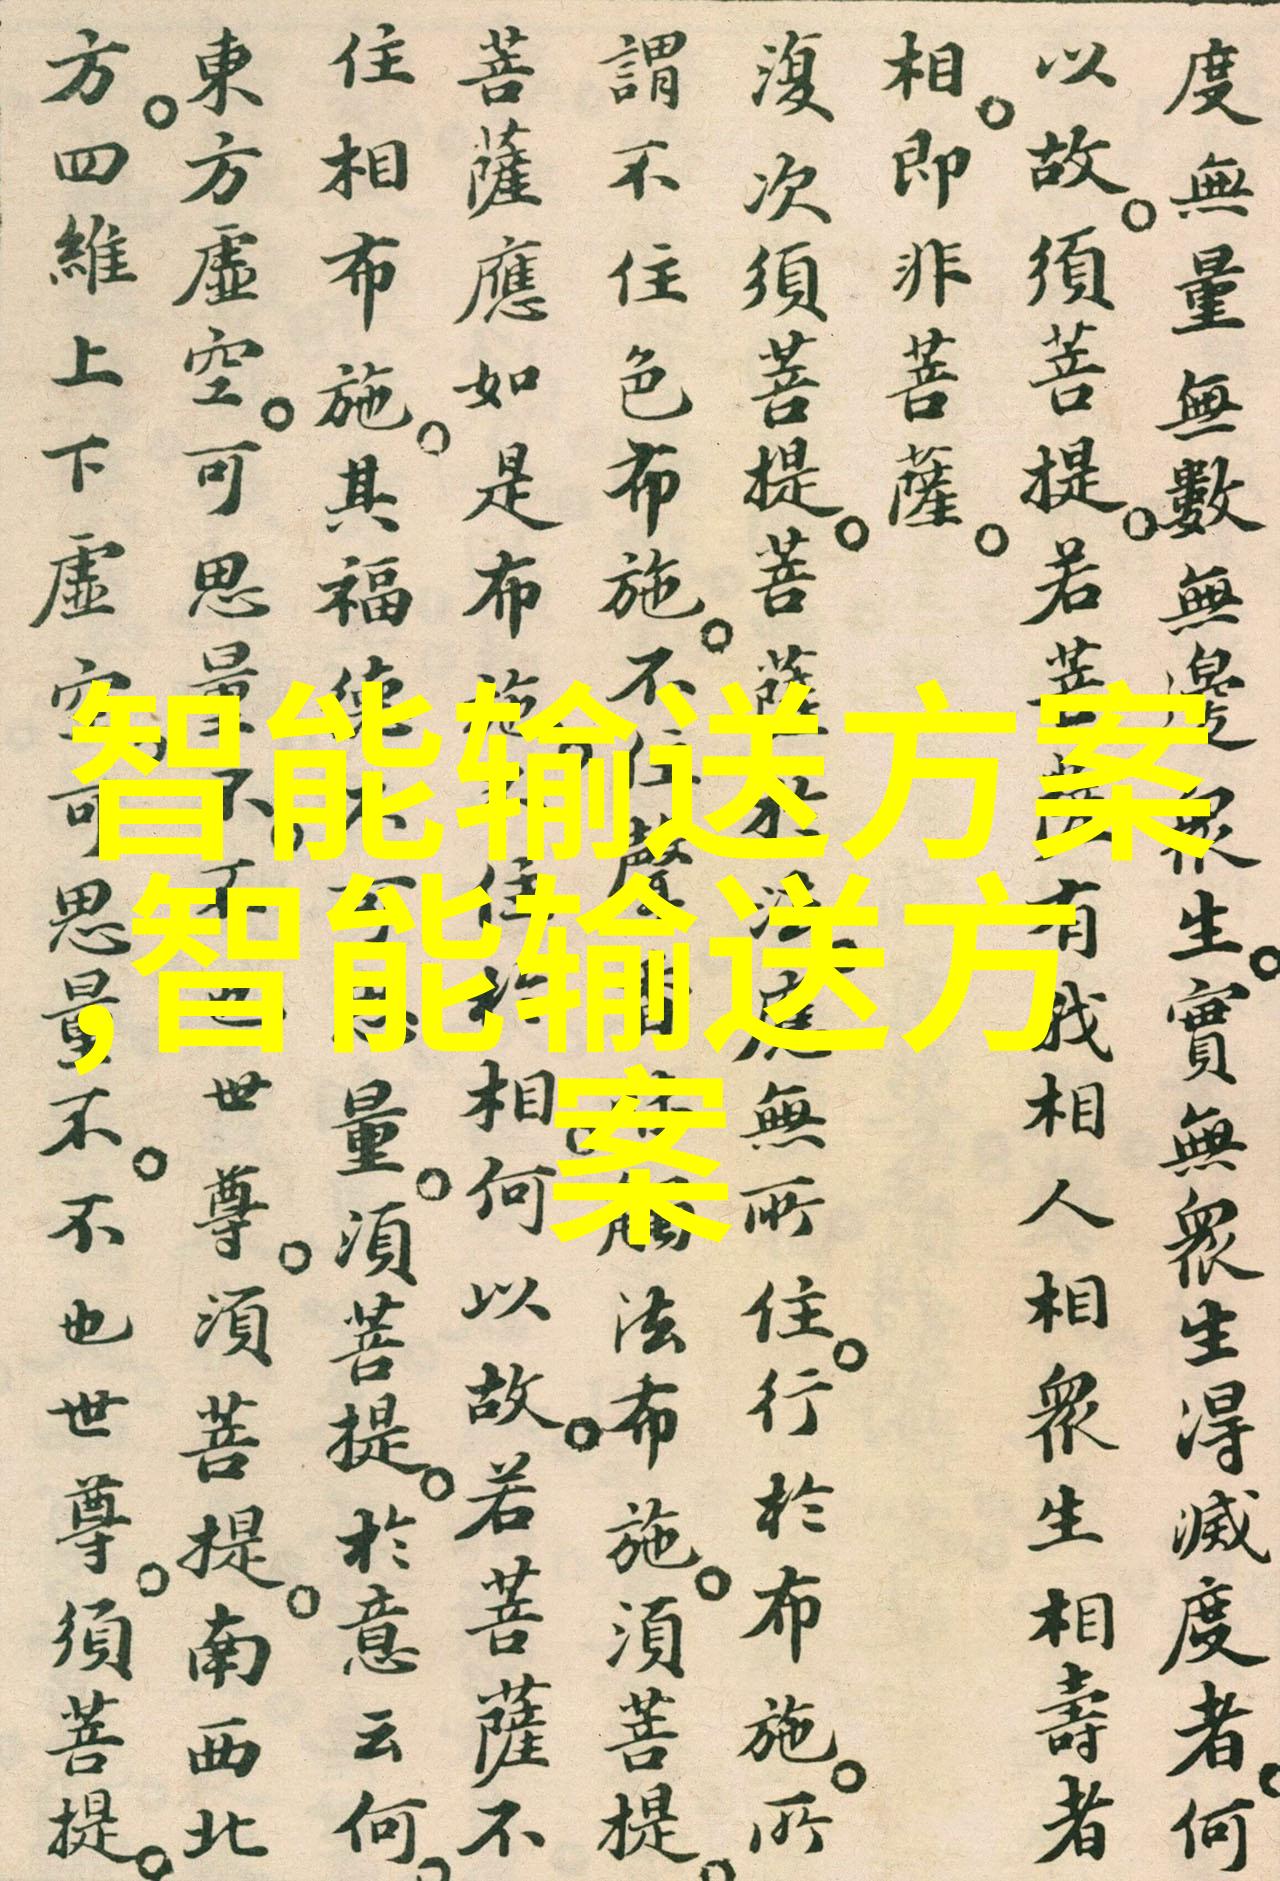 度無量無數無邊眾生。實無眾生得滅度者。何
以故。須菩提。若菩薩有我相人相眾生相壽者
相。即非菩薩。
復次須菩提。菩薩於法應無所住。行於布施。所
謂不住色布施。不住聲香味觸法布施。須菩提。
菩薩應如是布施。不住於相。何以故。若菩薩不
住相布施。其福德不可思量。須菩提。於意云何。
東方虛空。可思量不。不也世尊。須菩提。南西北
方。四維上下虛空。可思量不。不也世尊。須菩提。
智能输送方案
,智能输送方
案